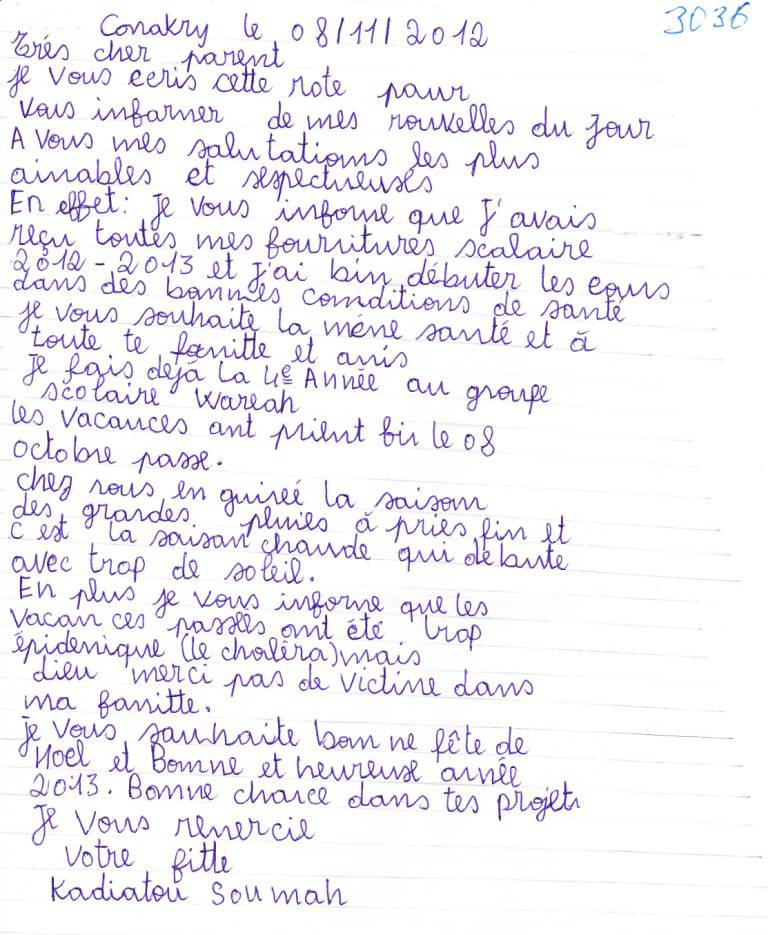 3036
Conakry le 08/11/2012
Trés cher parent
je vous ecris cette note pour
vous informer de mes nouvelles du jour
A vous mes salutations les plus
aimables et respectueuses
En effet: Je vous informe que J'avais
reçu toutes mes fournitures scalaire
2012-2013 et j'ai bin débuter les cours
dans des bonnes conditions de santé
je vous souhaite la mêne santé et à
toute te famitte et amis
Je fais dejà la 4e Année au groupe
scolaire Wareah
les vacances ont prient fin le 08
octobre passe.
chez nous en guineé la saison
des grandes pluies à pries fin et
c'est la saison chaude qui débute
avec trop de soleil.
En plus je vous informe que les
vacances passées ont été trop
épidenique (le choléra) mais
dieu merci pas de victine dans
ma famitte.
je vous souhaite bonne fête de
Noel et Bonne et heureuse année
2013. Bonne chance dans tes projets
Je vous renercie
votre fitte
Kadiatou Soumah